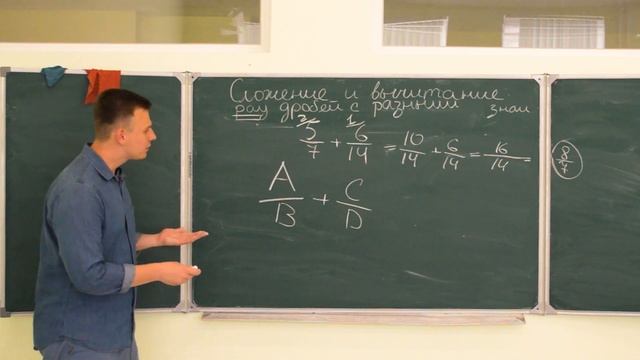 Сложение и вычитание
рац дробей с разным знам
2/ 1/
5/7 + 6/14 = 10/14 + 6/14 = 16/14 = 8/7
A/B + C/D